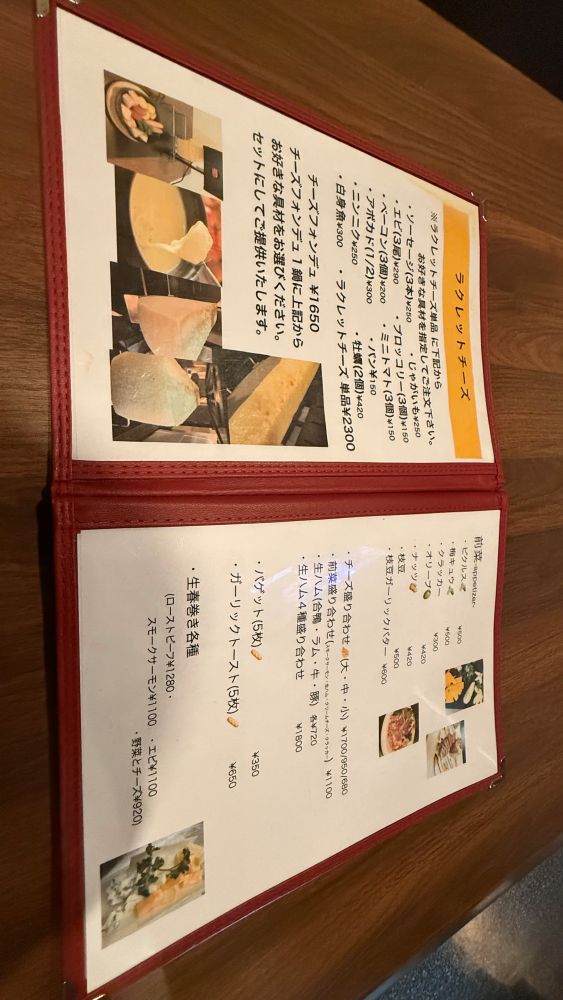 ラクレットチーズ
※ラクレットチーズ単品 に下記から
お好きな具材を指定してご注文下さい。
・ソーセージ(3本)¥250 ・じゃがいも¥250
・エビ(3尾)¥290 ・ブロッコリー(3個)¥150
・ベーコン(3個)¥200 ・ミニトマト(3個)¥150
・アボカド(1/2)¥300 ・パン¥150
・ニンニク¥250 ・牡蠣(2個)¥420
・白身魚¥300 ・ラクレットチーズ 単品¥2300
チーズフォンデュ ¥1650
チーズフォンデュ1鍋に上記から
お好きな具材をお選びください。
セットにしてご提供いたします。
前菜-appetizer-
・ピクルス ¥500
・梅キュウ ¥500
・クラッカー ¥300
・オリーブ ¥420
・ナッツ ¥420
・枝豆 ¥500
・枝豆ガーリックバター ¥600
・チーズ盛り合わせ (大・中・小) ¥1700/950/680
・前菜盛り合わせ(スモークサーモン・生ハム・クリームチーズ・クラッカー) ¥1100
・生ハム(合鴨・ラム・牛・豚) 各¥720
・生ハム4種盛り合わせ ¥1800
・バゲット(5枚) ¥350
・ガーリックトースト(5枚) ¥650
・生春巻き各種
(ローストビーフ¥1280・
スモークサーモン¥1100 ・エビ¥1100
・野菜とチーズ¥920)